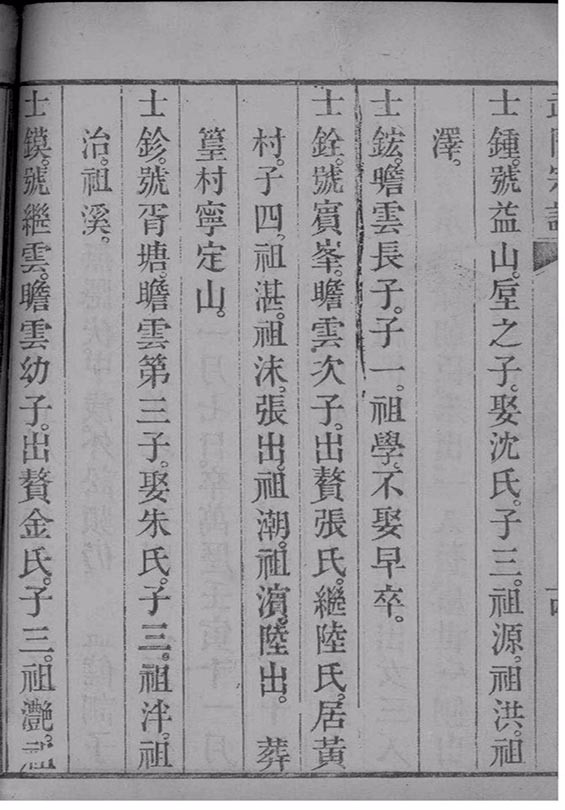 士鍾。號益山。厔之子。娶沈氏。子三。祖源。祖洪。祖
澤。
士鋐。瞻雲長子。子一。祖學。不娶早卒。
士銓。號賓峯。瞻雲次子。出贅張氏。繼陸氏。居黃
村。子四。祖湛。祖沫。張出。祖潮。祖濱。陸出。葬
篁村寧定山。
士鉁。號胥塘。瞻雲第三子。娶朱氏。子三。祖泮。祖
治。祖溪。
士鏌。號繼雲。瞻雲幼子。出贅金氏。子三。祖灧。祖